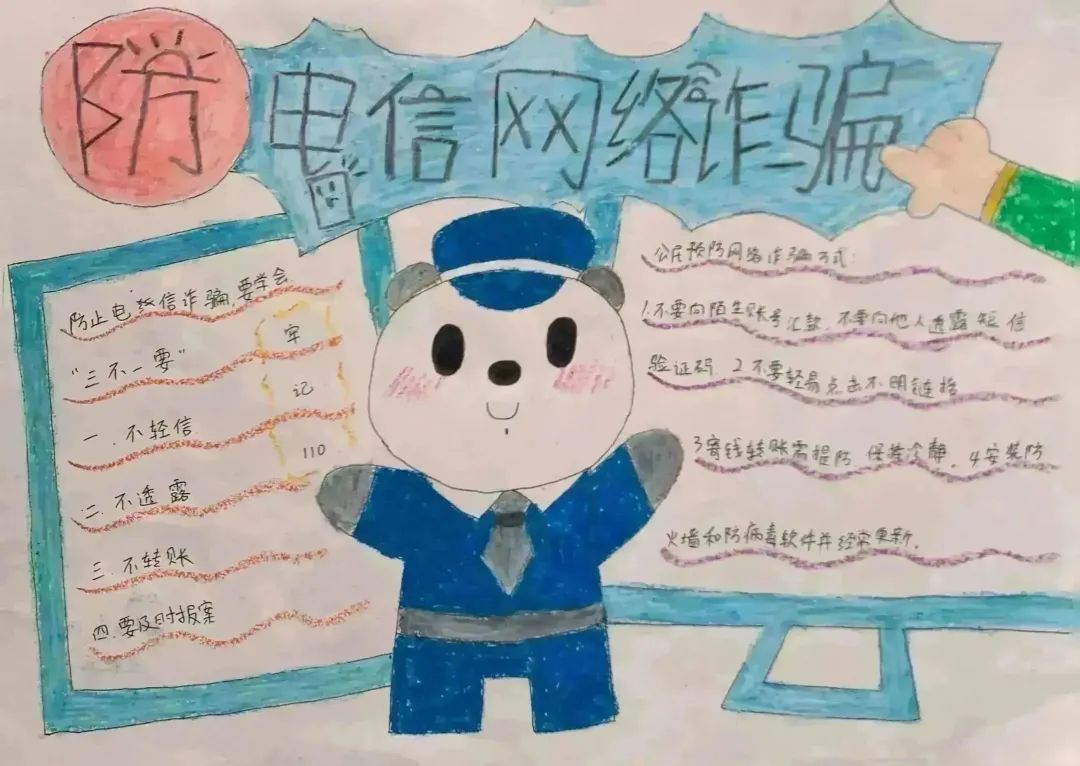 防电信网络诈骗
防止电信诈骗,要学会
"三不一要"
一.不轻信
二.不透露
三.不转账
四.要及时报案
牢
记
110
公民预防网络诈骗方式:
1.不要向陌生账号汇款,不要向他人透露短信
验证码.2不要轻易点击不明链接
3寄钱转账需提防 保持冷静.4安装防
火墙和防病毒软件并经常更新.